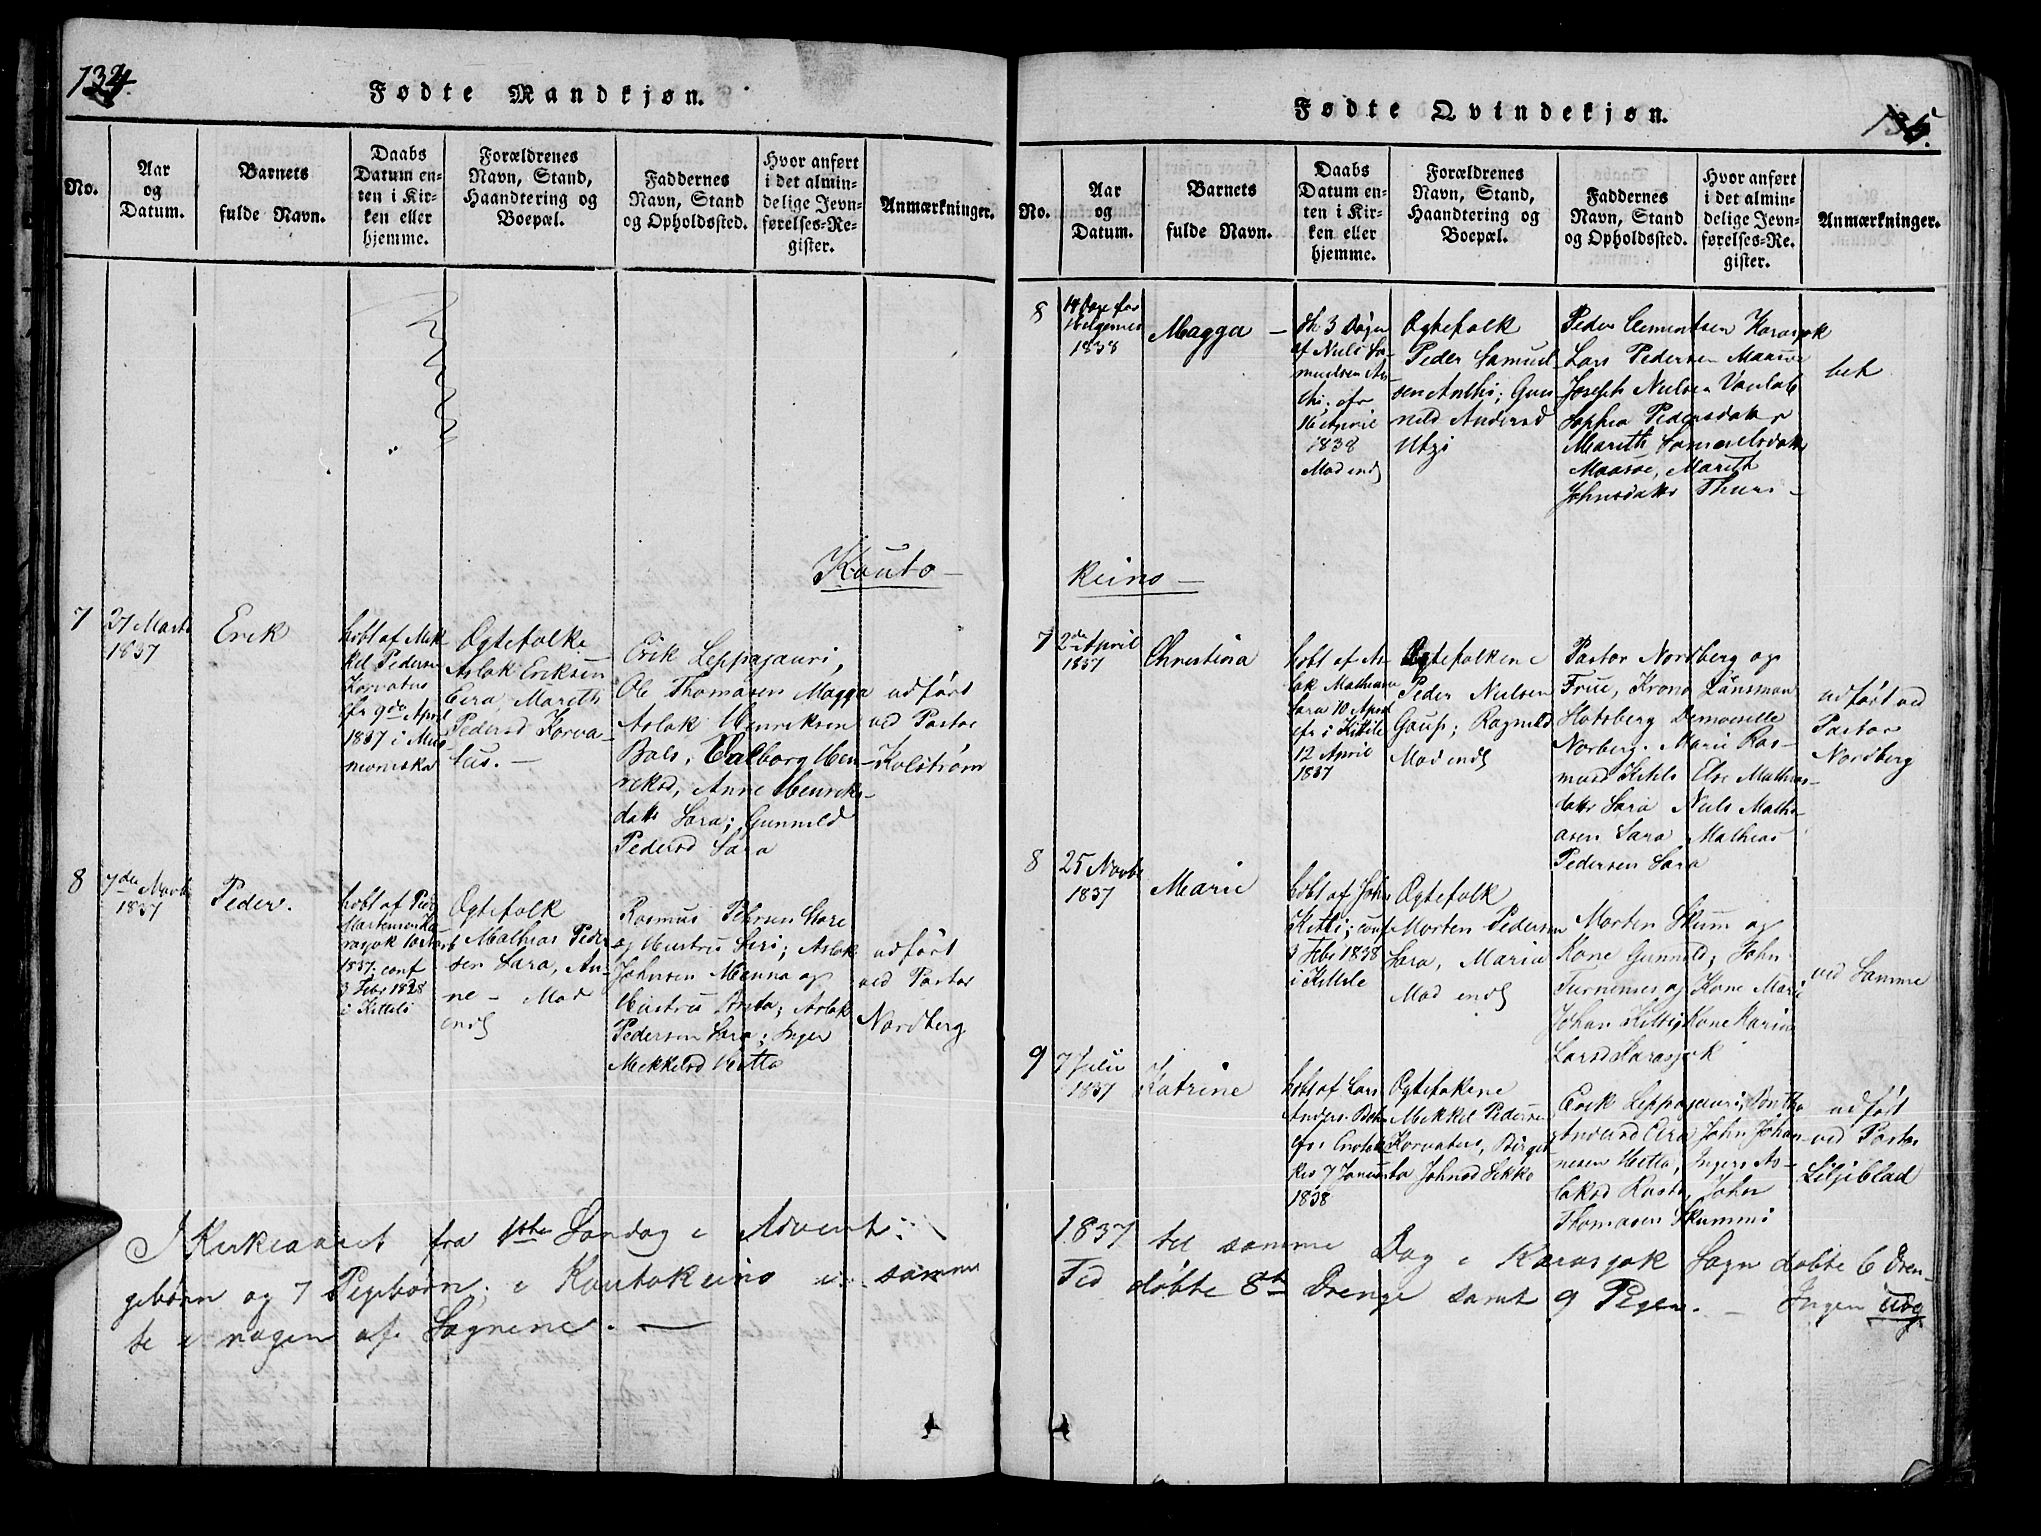 134.
Fødte Mandkjøn.
No.
Aar
og
Datum.
Barnets
fulde Navn.
Daabs
Datum en-
ten i Kir-
ken eller
hjemme.
Forældrenes
Navn, Stand,
Haandtering og
Boepæl.
Faddernes
Navn, Stand
og Opholdssted.
Hvor anført
i det almin-
delige Jevn-
førelses-Re-
gister.
Anmærkninger.
Kauto-
7
27 Marts
1837
Erik
døbt af Mik
kel Pedersen
Korvatus
cfr 9de April
1837 i Muo
nioniska
Ægtefolke
Aslak Eriksen
Eira, Mareth
Pedersd Korva-
tus. -
Erik Leppajauri,
Ole Thomasen Magga
Aslak Henriksen
Bals, Valborg Hen-
riksd, Anne Henriks-
datter Sara; Gunnild
Pedersd Sara
udført
ved Pastor
Kolstrøm
8
7de Novbr
1837
Peder.
døbt af Peder
Mortensen Ka
rasjok
1837; conf
3 Febr 1838
i Kittele
Ægtefolk
Mathias Peder
sen Sara, An-
ne - Mad
ends
Rasmus Pehrsen Store
og Hustru Siri; Aslak
Johnsen Menna og
Hustru Anta; Aslak
Pedersen Sara; Inger
Mekkelsd Hetta
udført
ved Pastor
Nordberg
I Kirkeaaret fra 1ste Søndag i Advent
gebørn og 7 Pigebørn; i Kautokeino samme
te i nogen af Sognene. -
135.
Fødte Qvindekjøn.
No.
Aar
og
Datum.
Barnets
fulde Navn.
Daabs
Datum en-
ten i Kir-
ken eller
hjemme.
Forældrenes
Navn, Stand,
Haandtering og
Boepæl.
Faddernes
Navn, Stand
og Opholdssted.
Hvor anført
i det almin-
delige Jevn-
førelses-Re-
gister.
Anmærkninger.
8
14 Dage før
Helgemes
1838
Magga -
dh 3 Dage
af Niels Sa-
muelsen An-
thi; cfr
16 April
1838
Mad ends
Ægtefolk
Peder Samuel-
sen Anthi; Gun
nild Andersd
Utzi
Peder Clemmetsen Karasjok
Lars Pedersen Maasøe
Joseph Nielsen
Sophia Pedersdatter
Mareth Samuelsdatter
Maasøe, Mareth
Johnsdatter Thuri -
bet
keino -
7
2de April
1837
Christina
døbt af As-
lak Mathisen
Sara 10 April
cfr i Kittele
12 April
1837
Ægtefolkene
Peder Nielsen
Gaup; Ragnild
Mad ends
Pastor Nordberg og
Frue, Krono Länsman
Hotsberg Demoiselle
Norberg. Marie Ras-
musd Kittele Else Mathias-
datter Sara Niels Mathi-
asen Sara Mathias
Pedersen Sara
udført ved
Pastor
Nordberg
8
25 Novbr
1837
Marie
døbt af John
Kitti; conf
3 Febr 1838
i Kittele
Ægtefolk
Morten Pedersen
Sara, Maria
Mad ends
Morten Skum og
Kone Gunnild; John
Turnenies og Kone Marie
Johan Kitti, Kone Karin
Larsd Karasjok
ved Samme
9
7 Juli
1837
Katrine
døbt af Lars
Anders.
cfr Enotek
kes 7 Januar
1838
Ægtefokene
Mekkel Pedersen
Korvatus, Birget
ha Johnsd Sikko
Erik Leppajauri, Bertha
Andersd Eira John Johan-
nesen Hetta, Inger As-
laksd Rasta, John
Thomasen Skummi
udført
ved Pastor
Liljeblad
1837 til samme Dag i Karasjok Sogn døbte 6 Dren-
Tid døbte 8te Drenge samt 9 Piger. - Ingen udøb